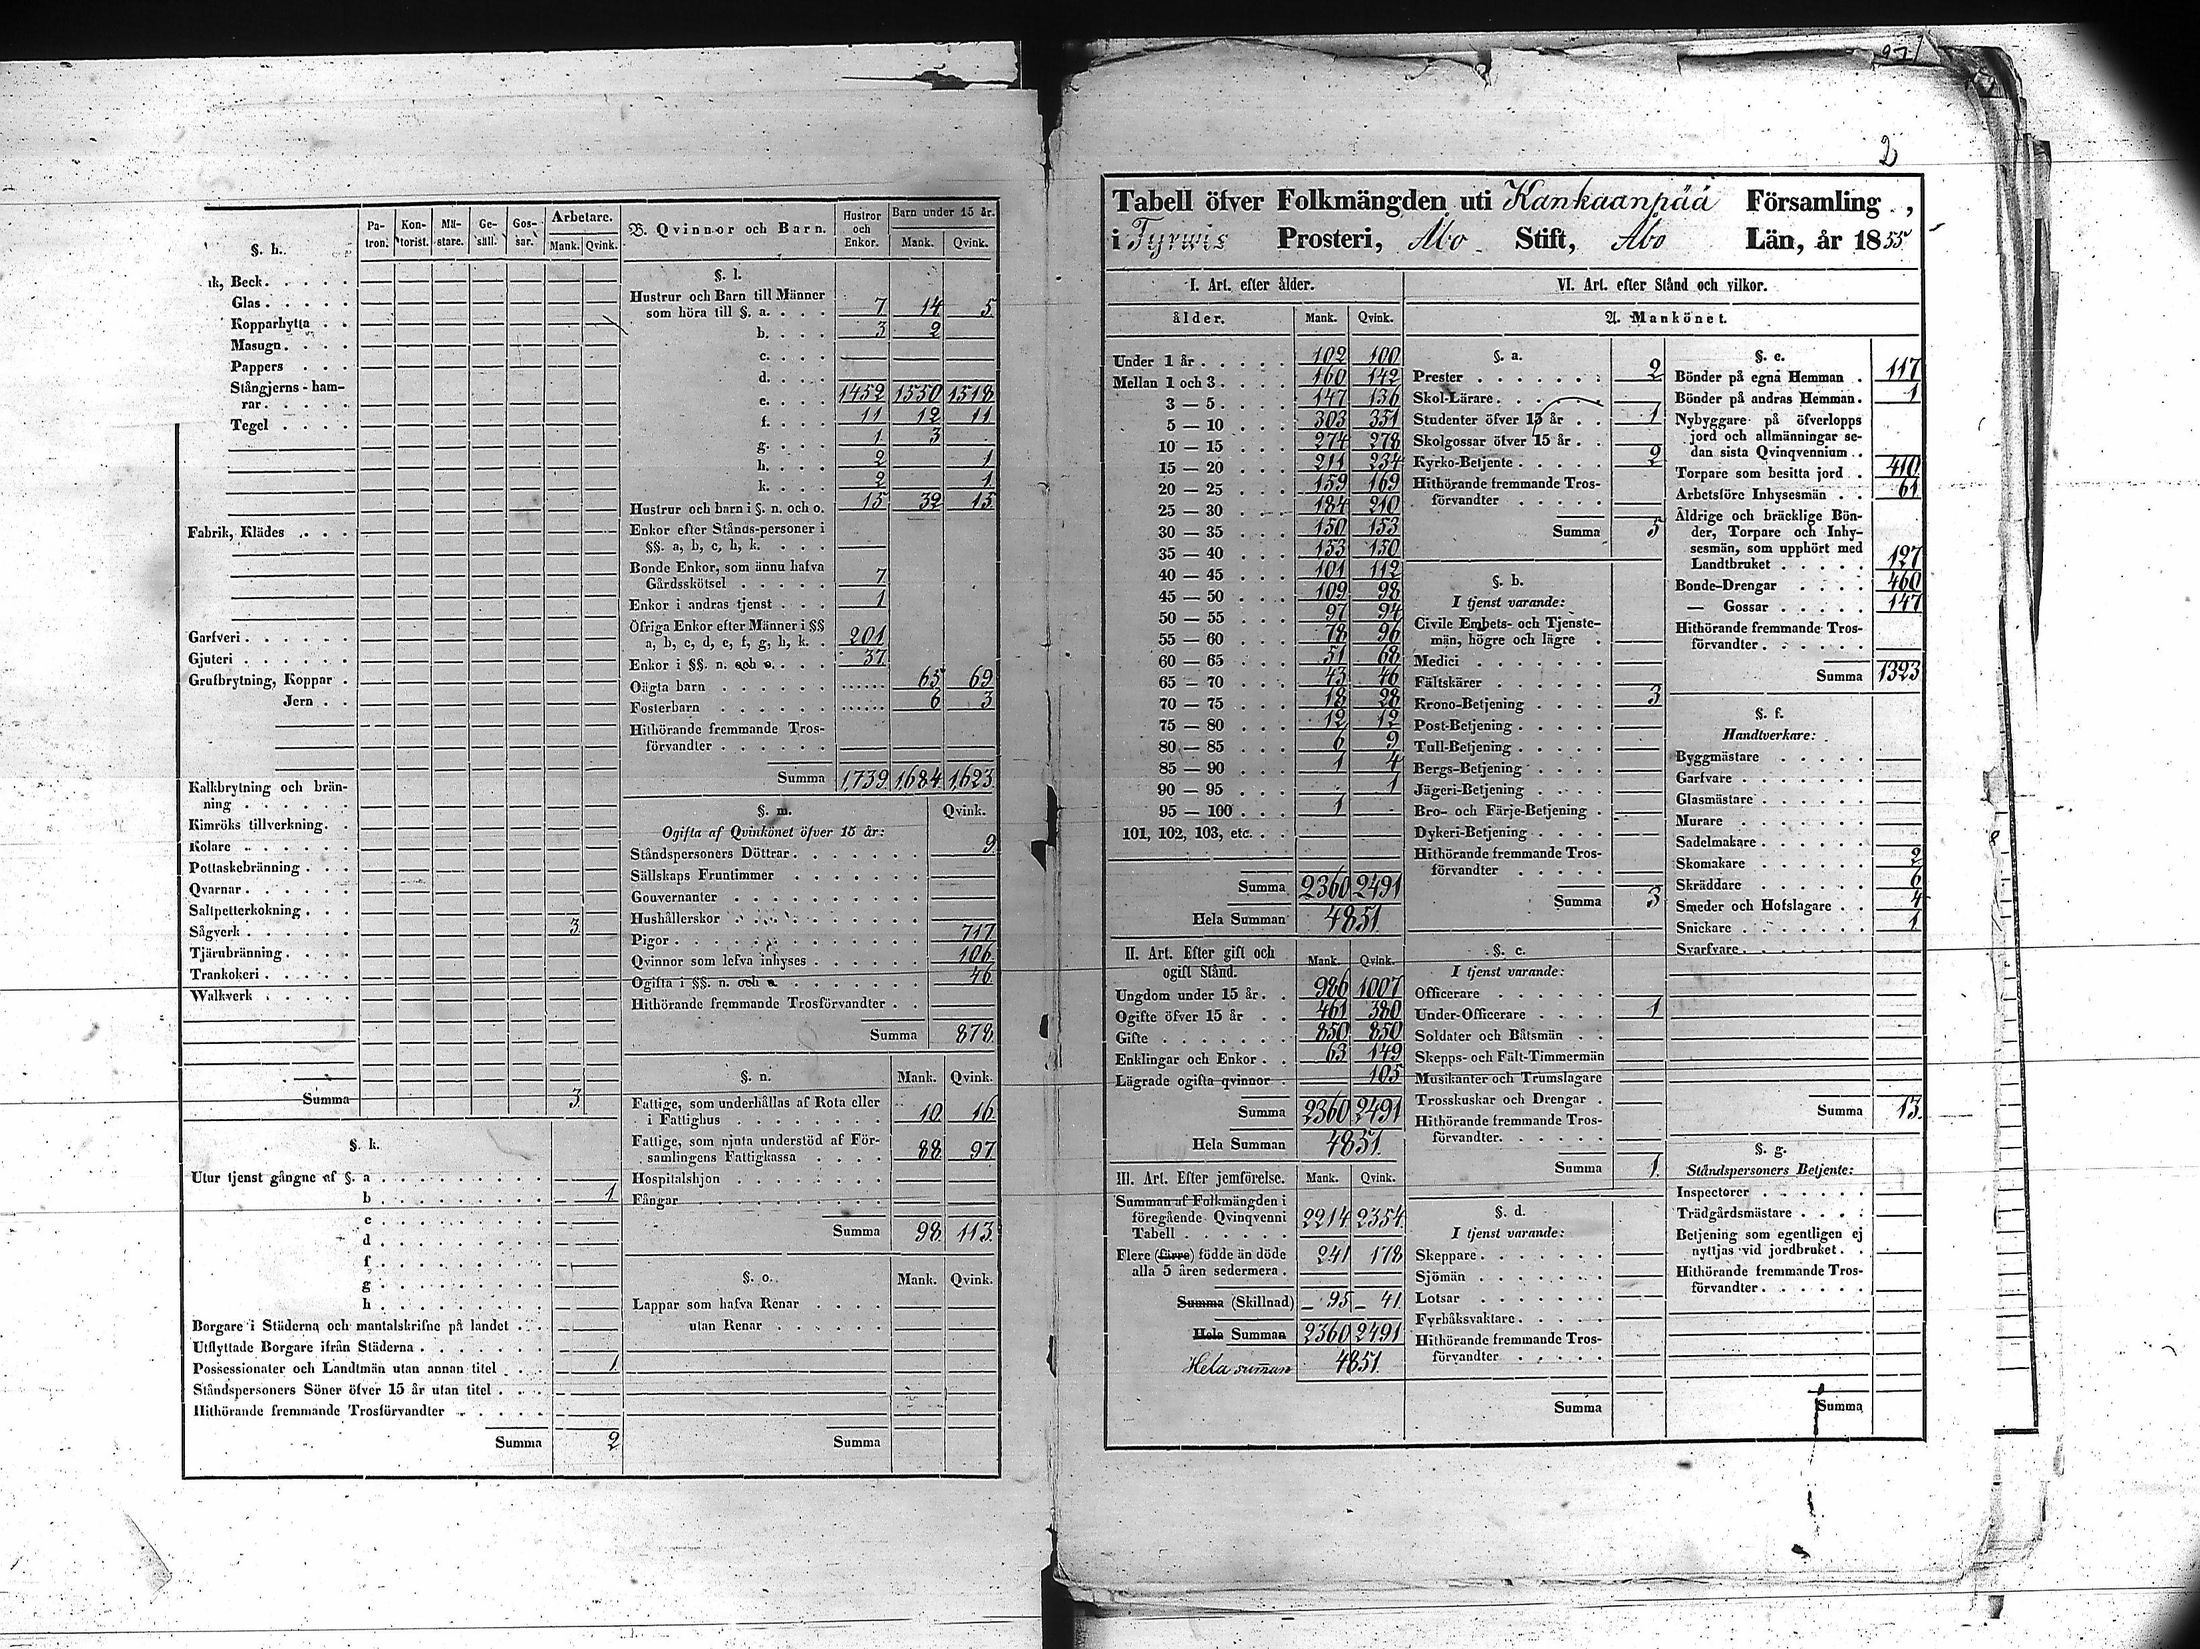 §. h.
Pa-tron. Kon-torist. Mä-stare. Ge-säll. Gos-sar. Arbetare. Mank. Qvink.
ik, Beck
Glas
Kopparhytta
Masugn
Pappers
Stångjerns-ham-
rar
Tegel
Fabrik, Klädes
Garfveri
Gjuteri
Grufbrytning, Koppar
Jern
Kalkbrytning och brän-
ning
Kimröks tillverkning
Kolare
Pottaskebränning
Qvarnar
Saltpetterkokning
Sågverk 3
Tjärubränning
Trankokeri
Walkverk
Summa 3
§. k.
Utur tjenst gångne af §. a
b 1
c
d
f
g
h
Borgare i Städerna och mantalskrifne på landet
Utflyttade Borgare ifrån Städerna
Possessionater och Landtmän utan annan titel 1
Ståndspersoners Söner öfver 15 år utan titel
Hithörande fremmande Trosförvandter
Summa 2
B. Qvinnor och Barn. Hustror och Enkor. Barn under 15 år. Mank. Qvink.
§. l.
Hustrur och Barn till Männer
som höra till §. a. 7 14 5
b. 3 2
c.
d.
e. 1452 1550 1518
f. 11 12 11
g. 1 3
h. 2 1
k. 2 1
Hustrur och barn i §. n. och o. 15 32 15
Enkor efter Stånds-personer i
§§. a, b, c, h, k.
Bonde Enkor, som ännu hafva
Gårdsskötsel 7
Enkor i andras tjenst 1
Öfriga Enkor efter Männer i §§
a, b, c, d, e, f, g, h, k. 201
Enkor i §§. n. och o. 37
Oägta barn 65 69
Fosterbarn 6 3
Hithörande fremmande Tros-
förvandter
Summa 1,739 1,684 1,623
§. m. Qvink.
Ogifta af Qvinkönet öfver 15 år:
Ståndspersoners Döttrar 9
Sällskaps Fruntimmer
Gouvernanter
Hushållerskor
Pigor 717
Qvinnor som lefva inhyses 106
Ogifta i §§. n. och o. 46
Hithörande fremmande Trosförvandter
Summa 878
§. n. Mank. Qvink.
Fattige, som underhållas af Rota eller
i Fattighus 10 16
Fattige, som njuta understöd af För-
samlingens Fattigkassa 88 97
Hospitalshjon
Fångar
Summa 98 113
§. o. Mank. Qvink.
Lappar som hafva Renar
utan Renar
Summa
2
Tabell öfver Folkmängden uti Kankaanpää Församling,
i Tyrwis Prosteri, Åbo Stift, Åbo Län, år 1855
I. Art. efter ålder.
ålder. Mank. Qvink.
Under 1 år 102 100
Mellan 1 och 3 160 142
3 — 5 147 136
5 — 10 303 351
10 — 15 274 278
15 — 20 211 234
20 — 25 159 169
25 — 30 184 210
30 — 35 150 153
35 — 40 153 150
40 — 45 101 112
45 — 50 109 98
50 — 55 97 94
55 — 60 78 96
60 — 65 51 68
65 — 70 43 46
70 — 75 18 28
75 — 80 12 12
80 — 85 6 9
85 — 90 1 4
90 — 95 1
95 — 100 1
101, 102, 103, etc.
Summa 2360 2491
Hela Summan 4851
II. Art. Efter gift och
ogift Stånd. Mank. Qvink.
Ungdom under 15 år 986 1007
Ogifte öfver 15 år 461 380
Gifte 850 850
Enklingar och Enkor 63 149
Lägrade ogifta qvinnor 105
Summa 2360 2491
Hela Summan 4851
III. Art. Efter jemförelse. Mank. Qvink.
Summan af Folkmängden i
föregående Qvinqvenni
Tabell 2214 2354
Flere (färre) födde än döde
alla 5 åren sedermera 241 178
Summa (Skillnad) - 95 - 41
Hela Summan 2360 2491
Hela summan 4851
VI. Art. efter Stånd och vilkor.
A. Mankönet.
§. a.
Prester 2
Skol-Lärare
Studenter öfver 15 år 1
Skolgossar öfver 15 år
Kyrko-Betjente 2
Hithörande fremmande Tros-
förvandter
Summa 5
§. b.
I tjenst varande:
Civile Embets- och Tjenste-
män, högre och lägre
Medici
Fältskärer
Krono-Betjening 3
Post-Betjening
Tull-Betjening
Bergs-Betjening
Jägeri-Betjening
Bro- och Färje-Betjening
Dykeri-Betjening
Hithörande fremmande Tros-
förvandter
Summa 3
§. c.
I tjenst varande:
Officerare
Under-Officerare 1
Soldater och Båtsmän
Skepps- och Fält-Timmermän
Musikanter och Trumslagare
Trosskuskar och Drengar
Hithörande fremmande Tros-
förvandter
Summa 1
§. d.
I tjenst varande:
Skeppare
Sjömän
Lotsar
Fyrbåksvaktare
Hithörande fremmande Tros-
förvandter
Summa
§. e.
Bönder på egna Hemman 117
Bönder på andras Hemman 1
Nybyggare på öfverlopps
jord och allmänningar se-
dan sista Qvinqvennium
Torpare som besitta jord 410
Arbetsföre Inhysesmän 61
Åldrige och bräcklige Bön-
der, Torpare och Inhy-
sesmän, som upphört med
Landtbruket 127
Bonde-Drengar 460
— Gossar 147
Hithörande fremmande Tros-
förvandter
Summa 1323
§. f.
Handtverkare:
Byggmästare
Garfvare
Glasmästare
Murare
Sadelmakare
Skomakare 2
Skräddare 6
Smeder och Hofslagare 4
Snickare 1
Svarfvare
Summa 13
§. g.
Ståndspersoners Betjente:
Inspectorer
Trädgårdsmästare
Betjening som egentligen ej
nyttjas vid jordbruket
Hithörande fremmande Tros-
förvandter
Summa